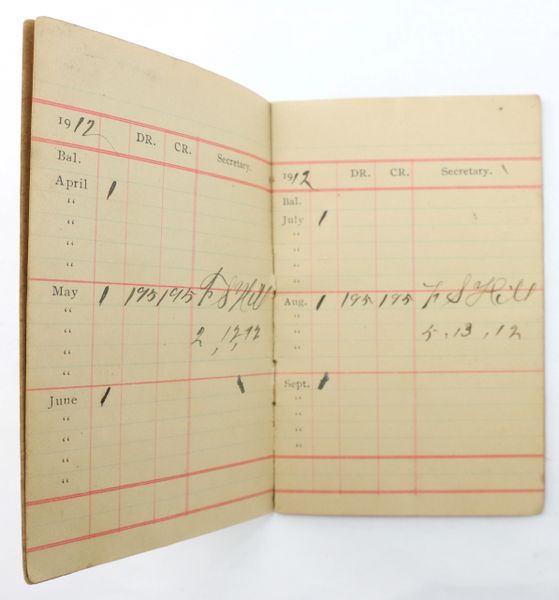 1912 DR. CR. Secretary.
Bal.
April 1
"
"
"
"
May 1 195 195 F S Hill
" 2, 12, 12
"
"
"
June 1
"
"
"
"
1912 DR. CR. Secretary.
Bal.
July 1
"
"
"
"
Aug. 1 195 195 F S Hill
"
" 5, 13, 12
"
"
Sept. 1
"
"
"
"